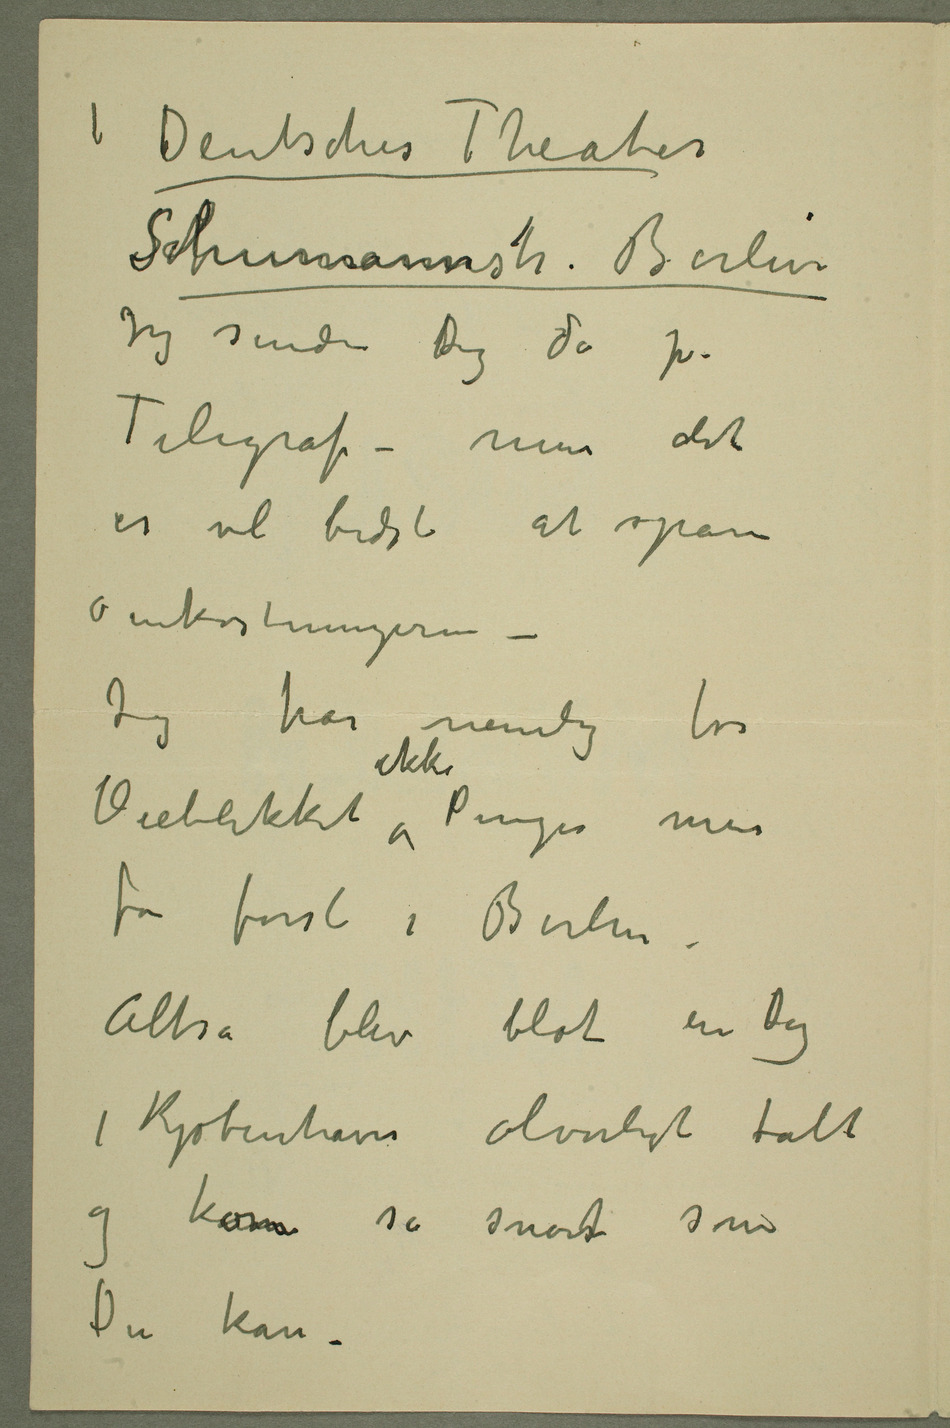 I Deutsches Theater
Schumannstr. Berlin
Jeg sender Dig da pr.
Telegraf – men det
er vel bedst at spare
omkostningerne –
Jeg har nemlig for
ikke
Øieblikket Penge men
får først i Berlin.
Altså blev blot en Dag
i Kjøbenhavn alvorligt talt
og kom så snart som
Du kan –